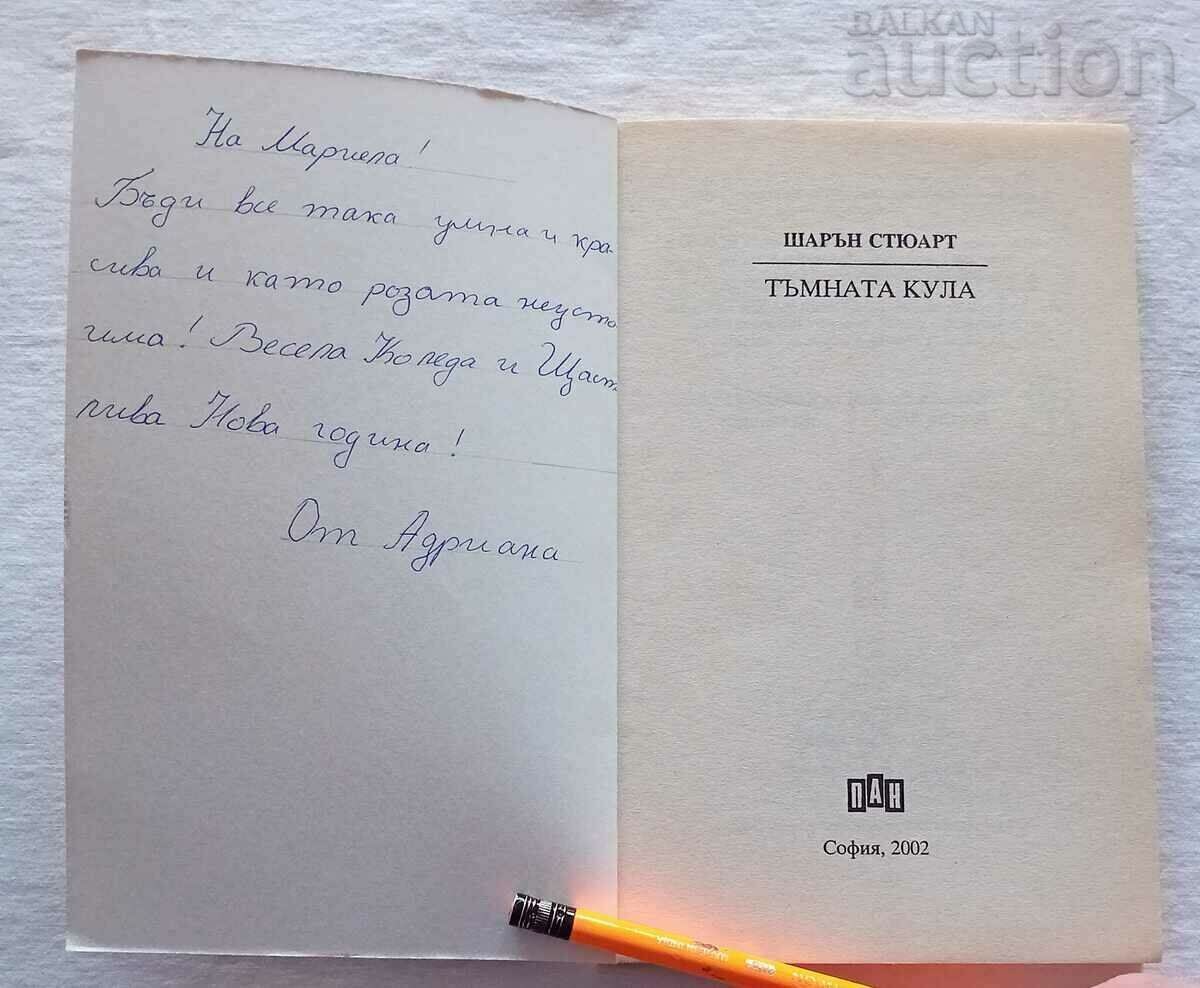 BALKAN
auction
На Мариела!
Бъди все така умна и кра-
сива и като розата неусто
има! Весела Коледа и Щаст-
лива Нова година!
От Адриана
ШАРЪН СТЮАРТ
ТЪМНАТА КУЛА
ПАН
София, 2002